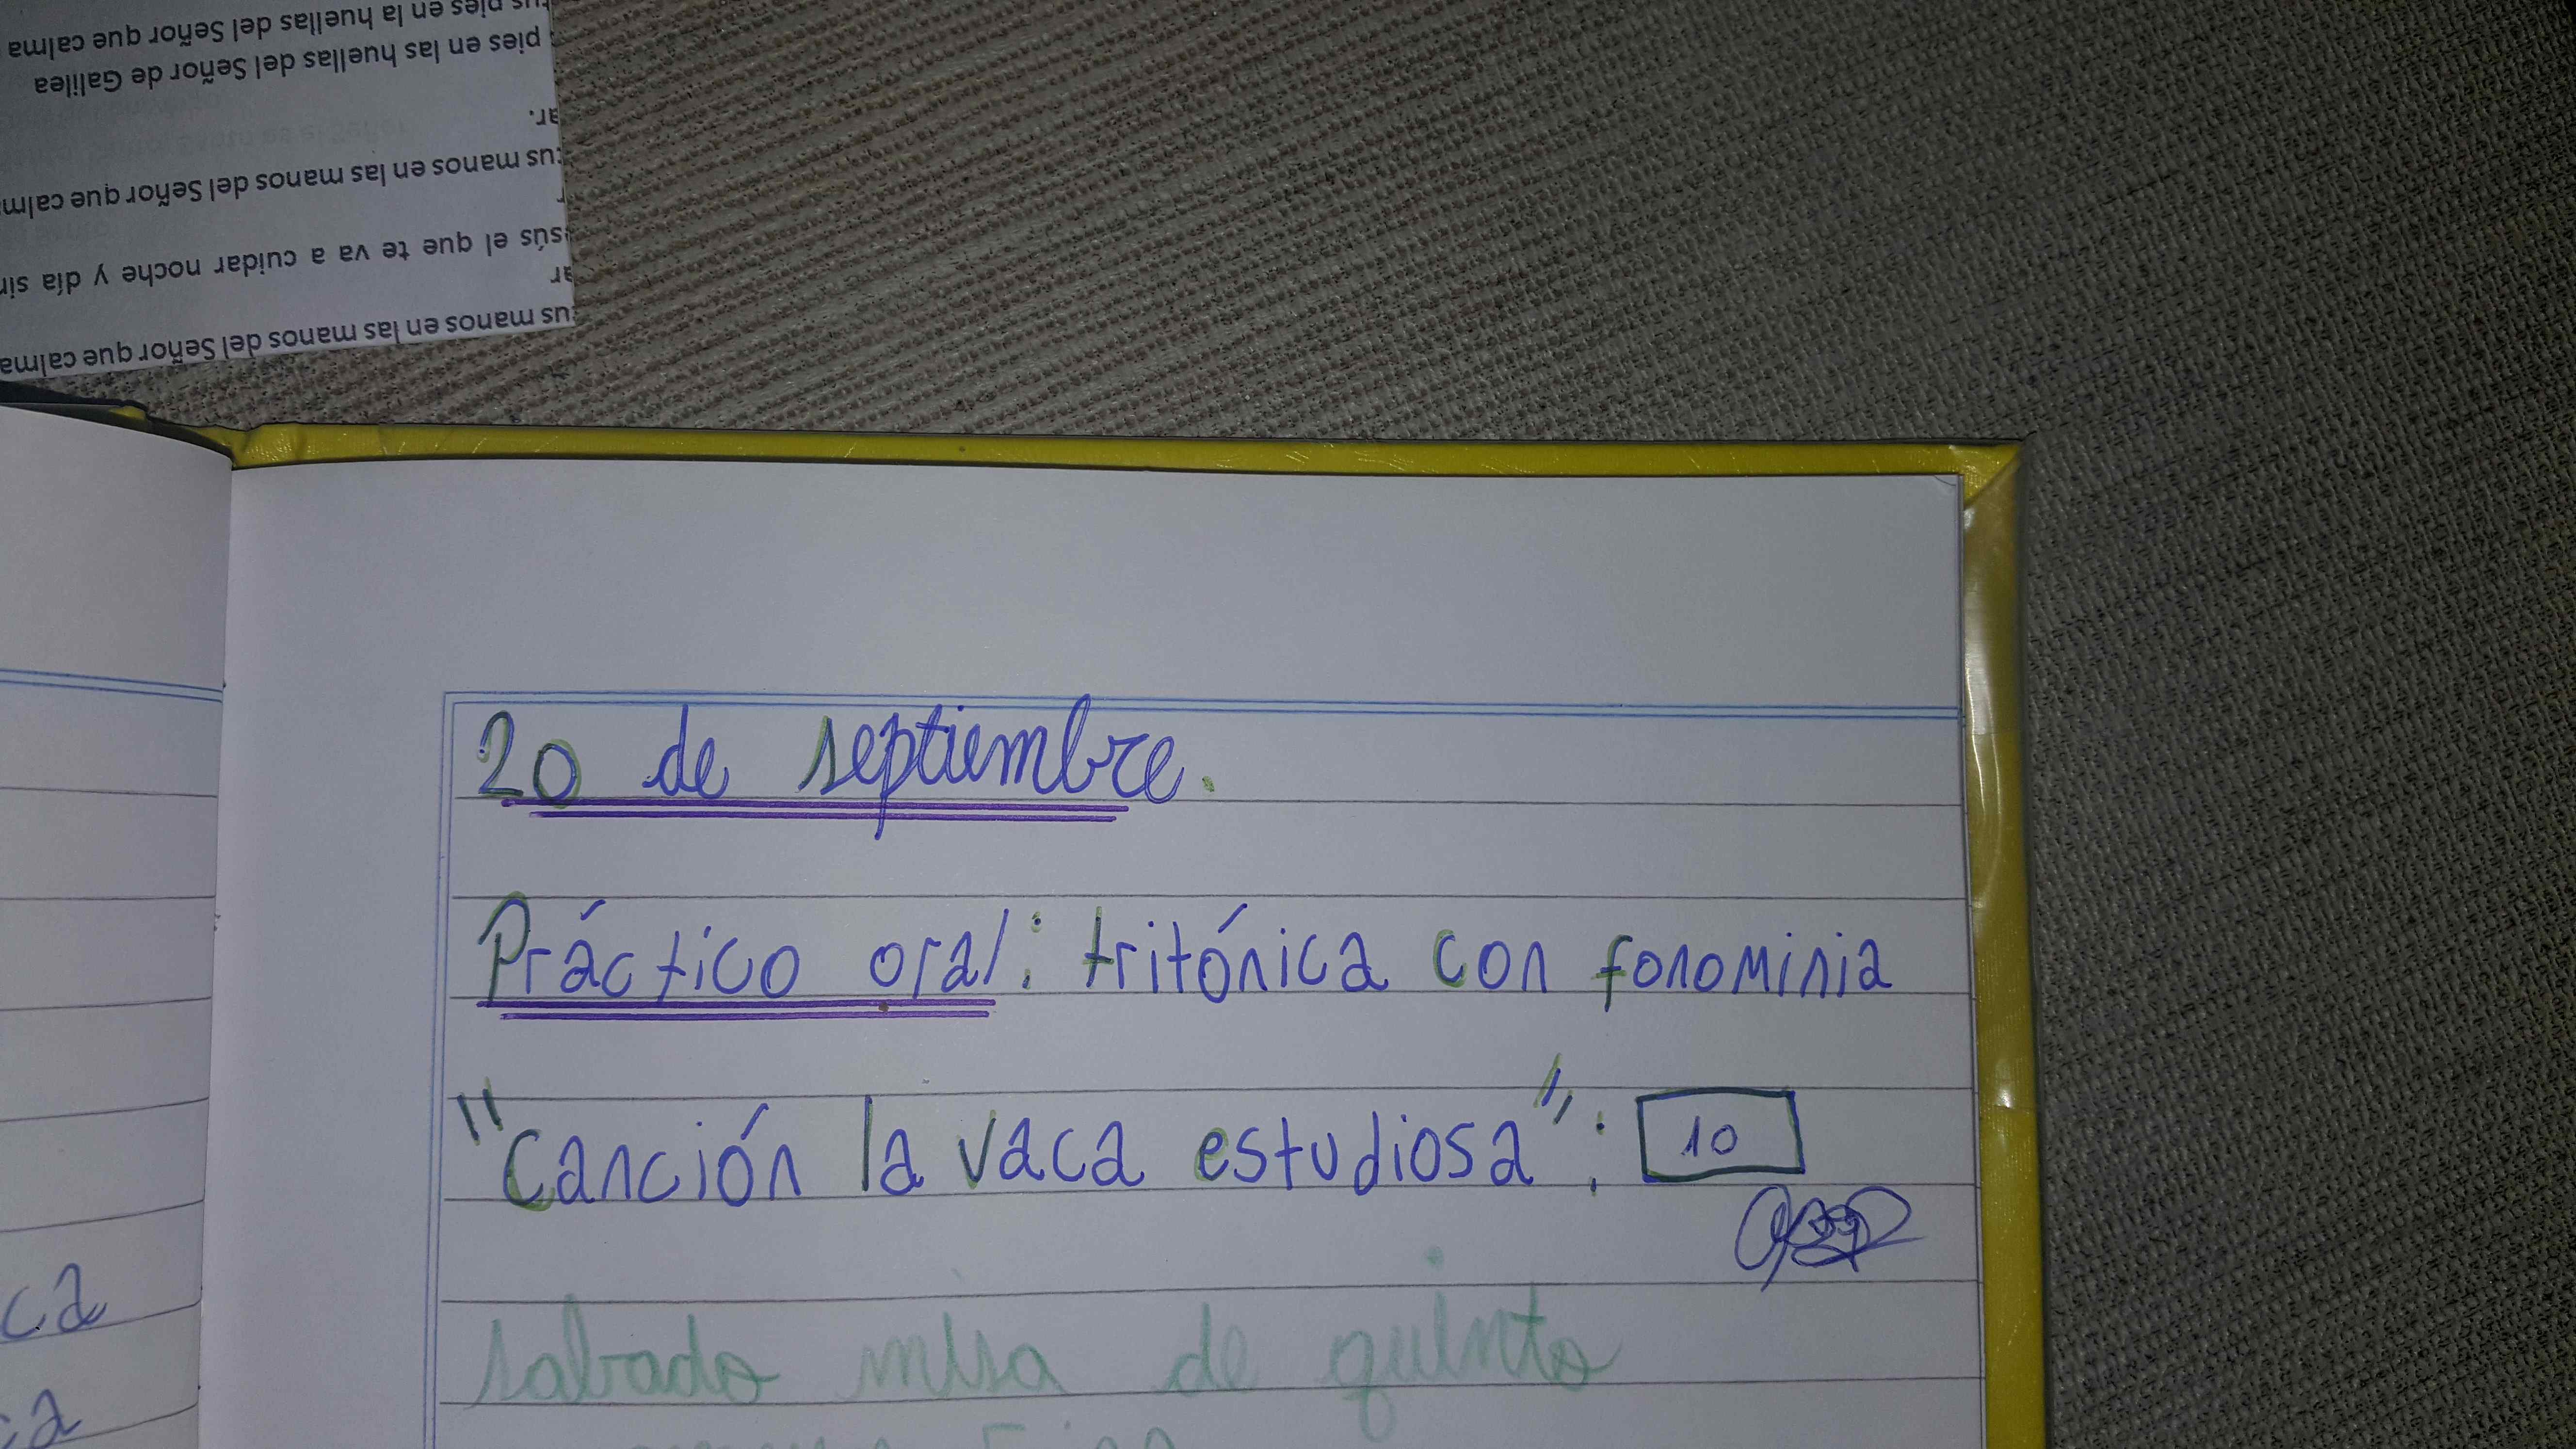 pies en la huellas del Señor que calma
pies en las huellas del Señor de Galilea
ar.
tus manos en las manos del Señor que calm
r
sús el que te va a cuidar noche y día sin
ar
us manos en las manos del Señor que calma
20 de septiembre.
Práctico oral: tritónica con fonominia
"Canción la vaca estudiosa": 10
sabado misa de quinto
ca